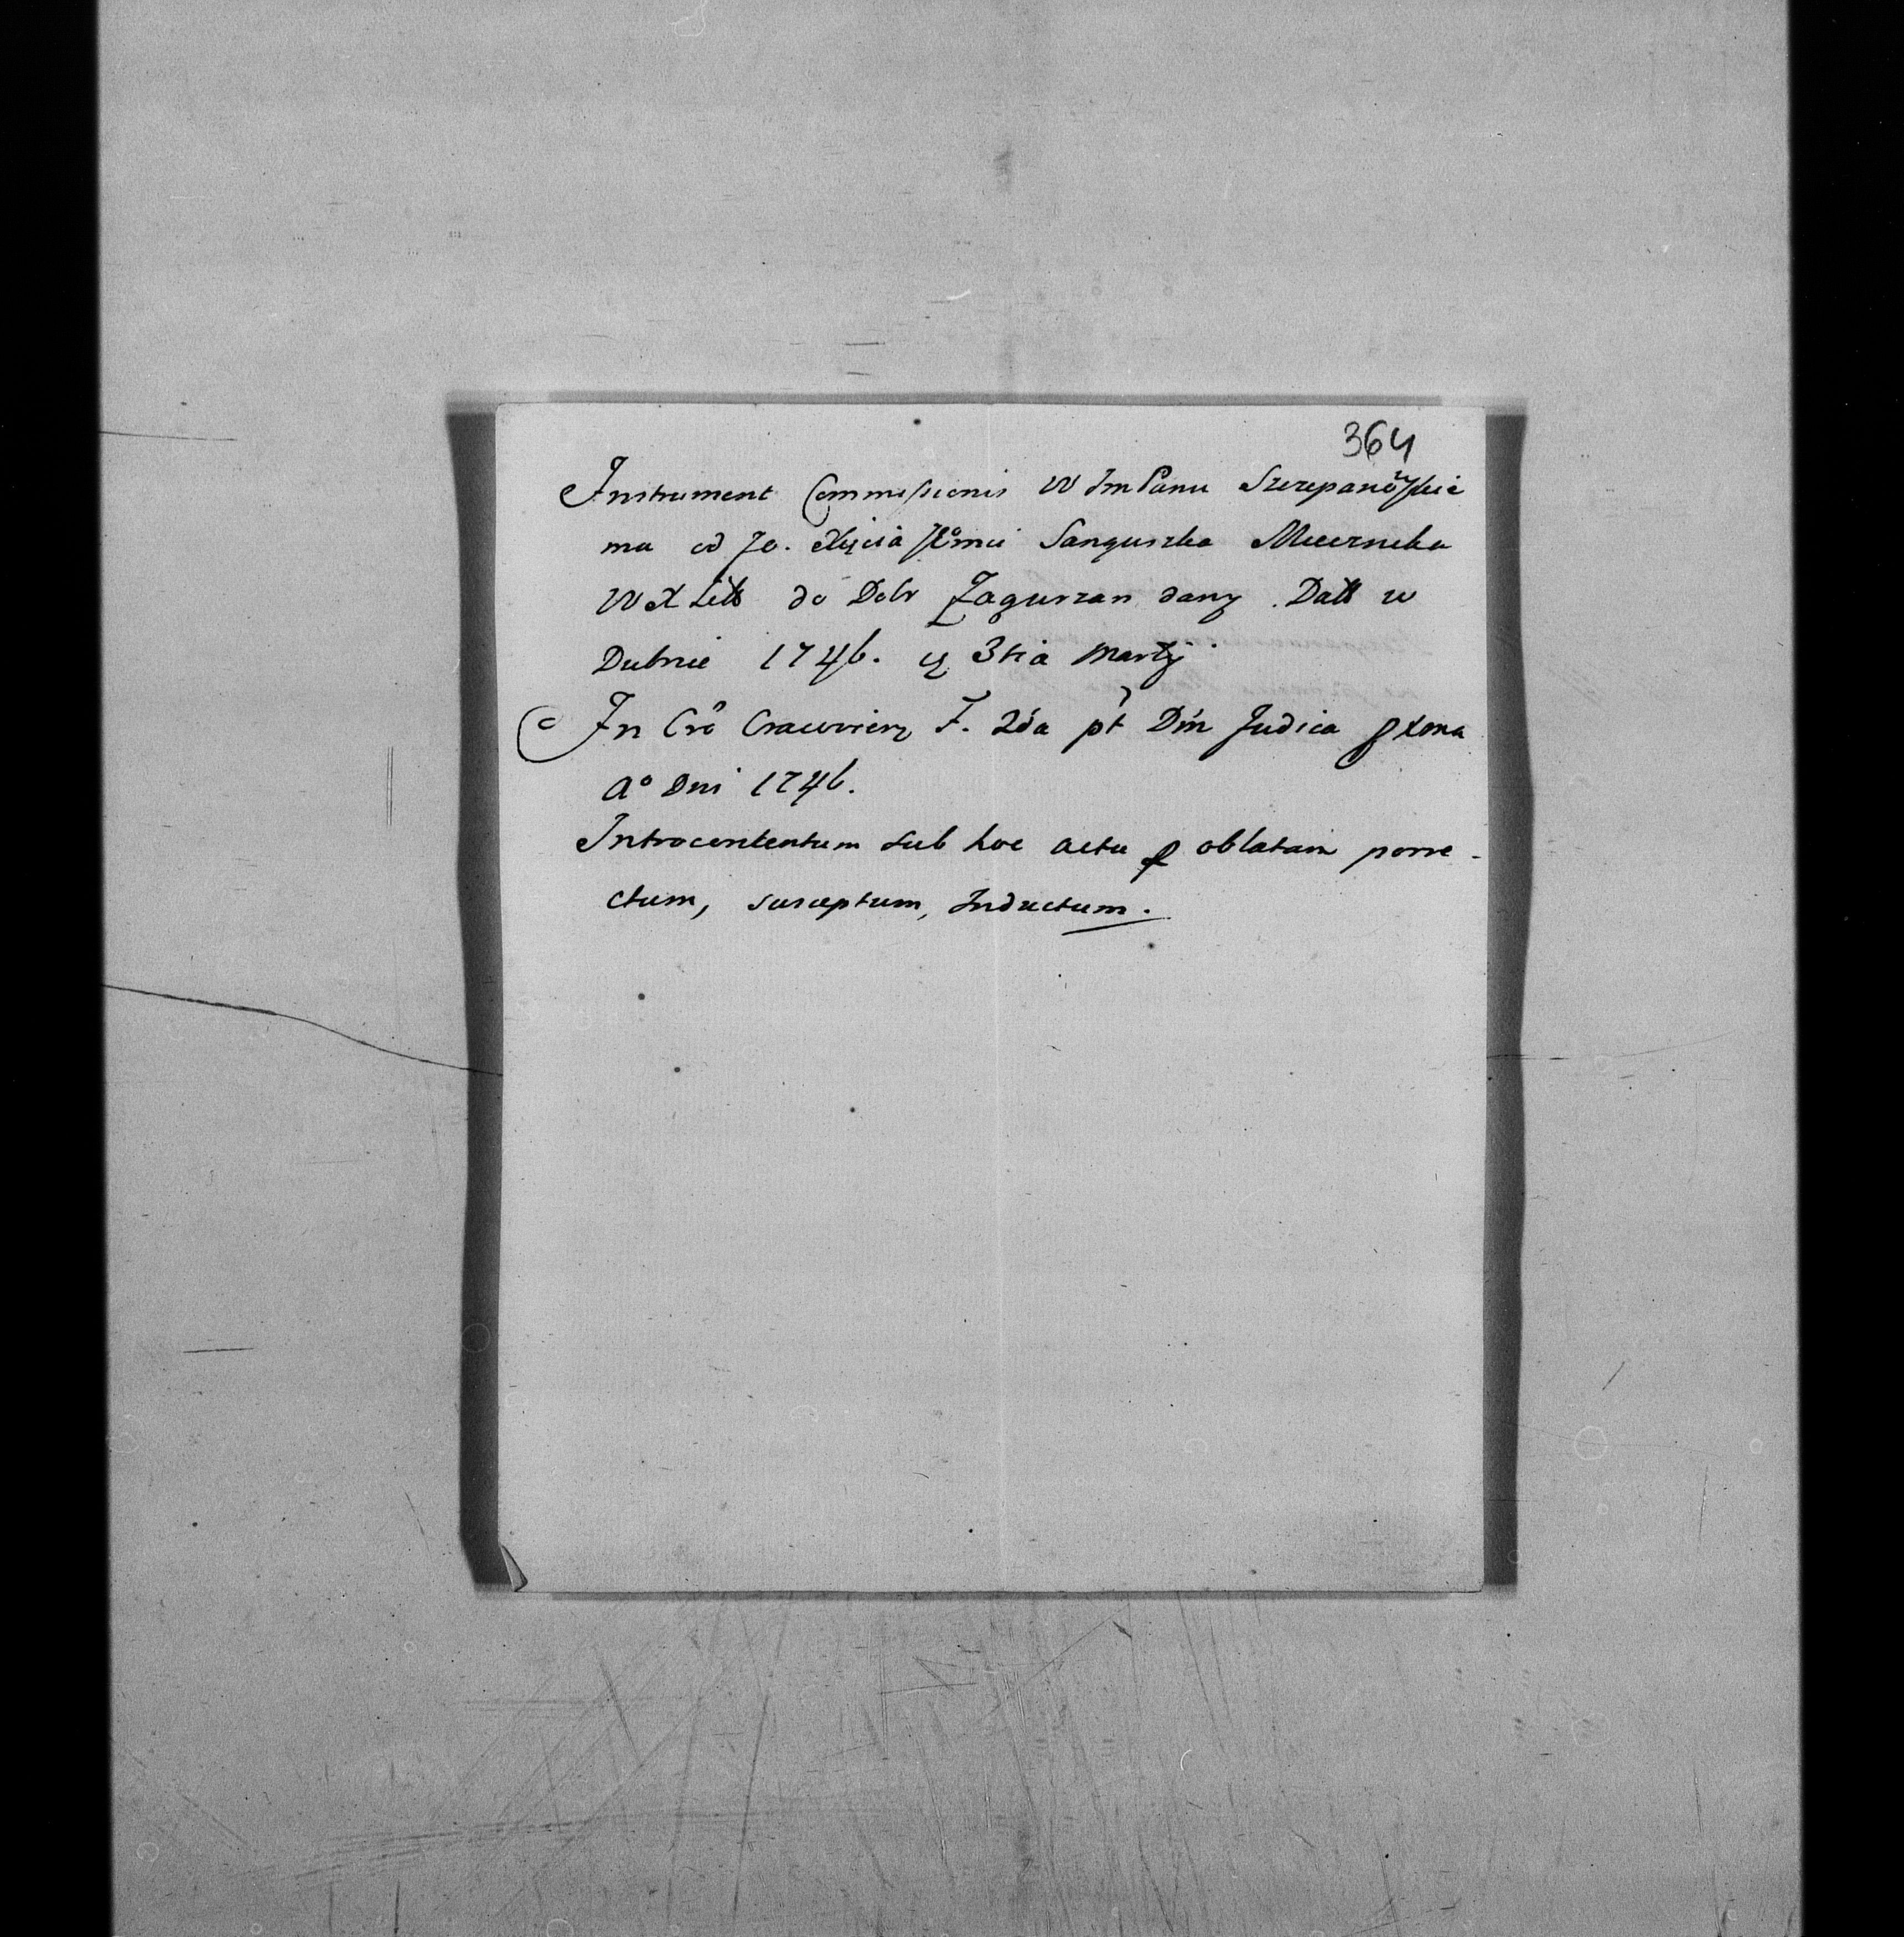 364
Instrument Commissionis W ImPanu Szczepanowskie
mu od Jo. Xięcia Jmci Sanguszka Miecznika
W X Litt do Dobr Zagurzan dany. Datt w
Dubnie 1746. 3tia Martij
In Crô Cracovien F. 2da pt Dm Judica pxma
Ao Dni 1746.
Introcontentum sub hoc actu p oblatam porre-
ctum, susceptum, Inductum.